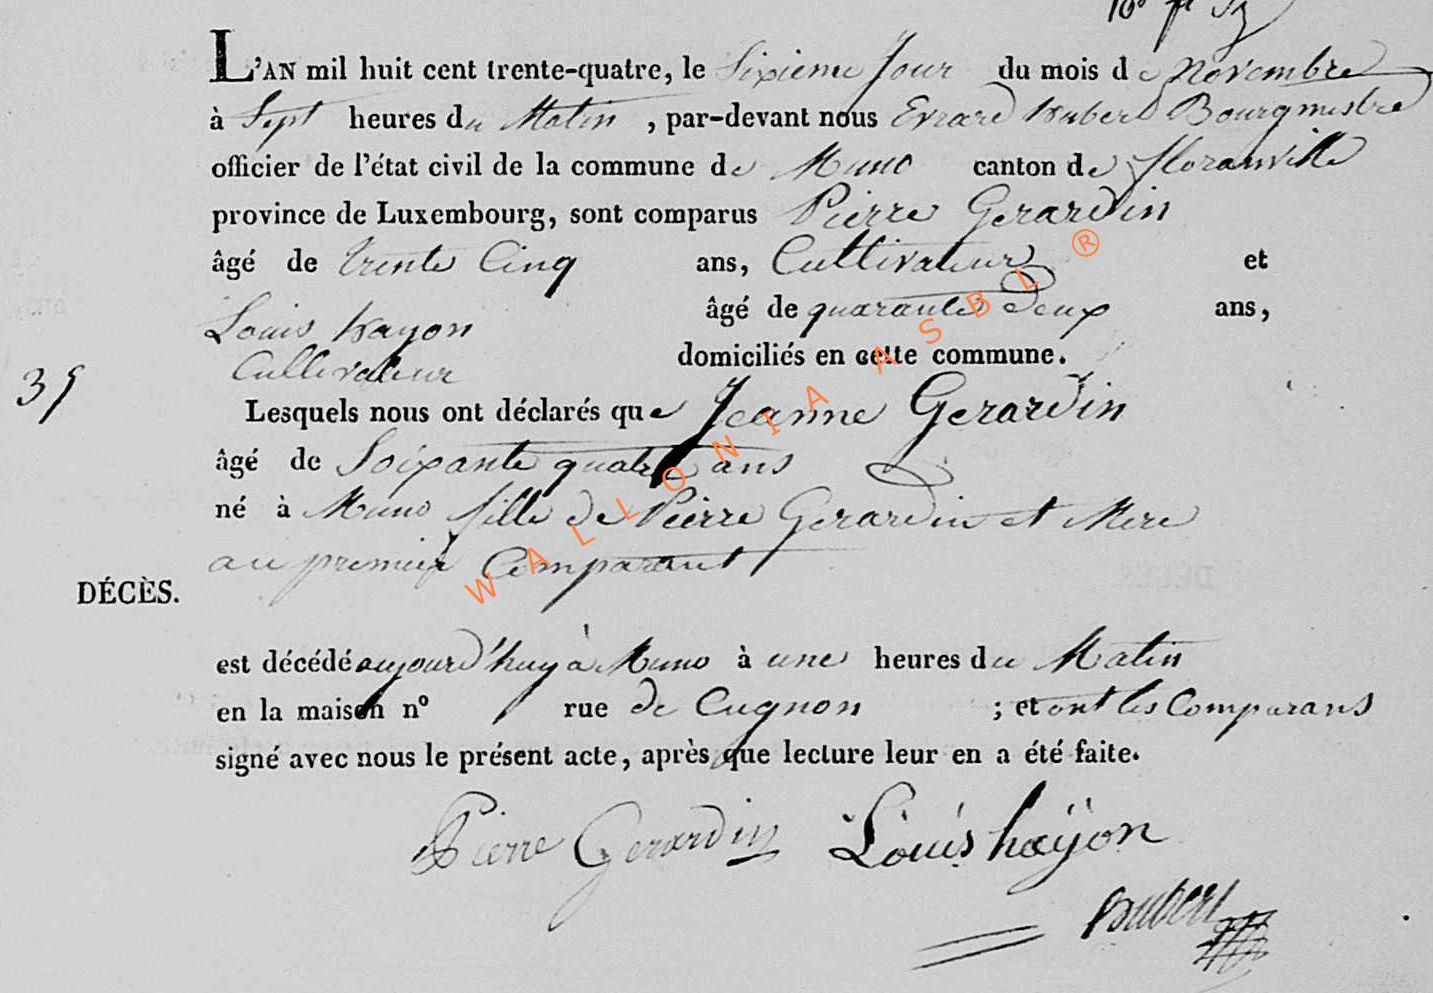 L'AN mil huit cent trente-quatre, le Sixieme Jour du mois de Novembre
à Sept heures du Matin, par-devant nous Evrard hubert Bourgmestre
officier de l'état civil de la commune de Muno canton de florenville
province de Luxembourg, sont comparus Pierre Gerardin
âgé de trente Cinq ans, Cultivateur et
Louis hayon âgé de quarante deux ans,
Cultivateur domiciliés en cette commune.
35
Lesquels nous ont déclarés que Jeanne Gerardin
âgé de Soixante quatre ans
né à Muno fille de Pierre Gerardin et Mere
au premier Comparant
DÉCÈS.
est décédé aujourd'huy à Muno à une heures du Matin
en la maison n° rue de Cugnon ; et ont les Comparans
signé avec nous le présent acte, après que lecture leur en a été faite.
Pierre Gerardin Louis häyon
hubert
WALLONIA ASBL ®